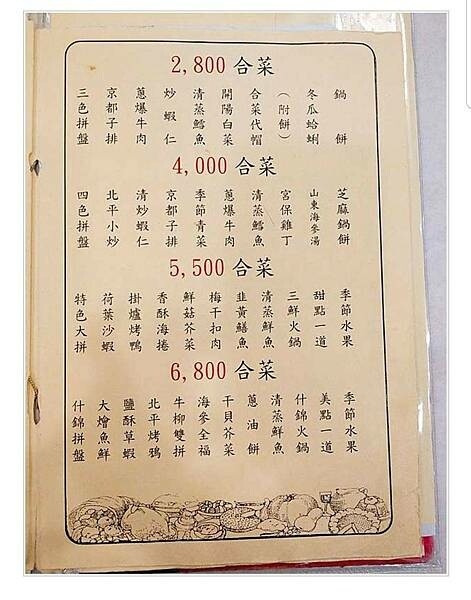 2,800 合菜
三色拼盤
京都子排
蔥爆牛肉
炒蝦仁
清蒸鱈魚
開陽白菜
合菜代帽
（附餅）
冬瓜蛤蜊
鍋餅
4,000 合菜
四色拼盤
北平小炒
清炒蝦仁
京都子排
季節青菜
蔥爆牛肉
清蒸鱈魚
宮保雞丁
山東海參湯
芝麻鍋餅
5,500 合菜
特色大拼
荷葉沙蝦
掛爐烤鴨
香酥海捲
鮮菇芥菜
梅干扣肉
韭黃鱔魚
清蒸鮮魚
三鮮火鍋
甜點一道
季節水果
6,800 合菜
什錦拼盤
大燴魚鮮
鹽酥草蝦
北平烤鴉
牛柳雙拼
海參全福
干貝芥菜
蔥油餅
清蒸鮮魚
什錦火鍋
美點一道
季節水果